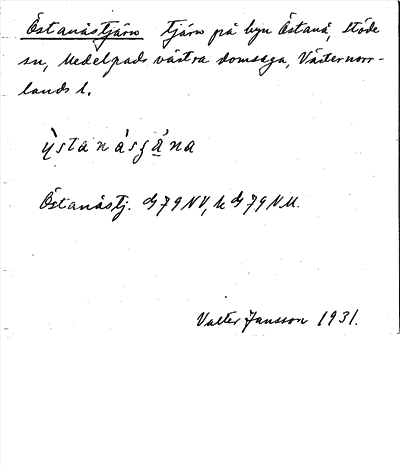 Östanåstjärn tjärn på byn Östanå, Stöde
sn, Medelpads västra domsaga, Västernorr-
lands l.
Östanåstj. G79NV, k G79NU.
Valter Jansson 1931.